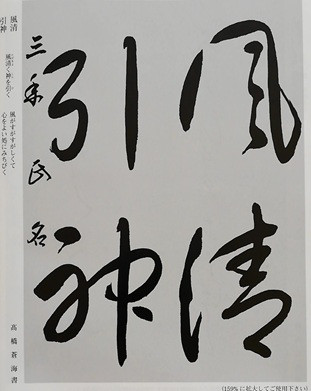 風清
引神
三年 氏名
風清
引神
風清く神を引く
風がすがすがしくて
心をよい処にみちびく
高橋蒼海書
(159%に拡大してご使用下さい)